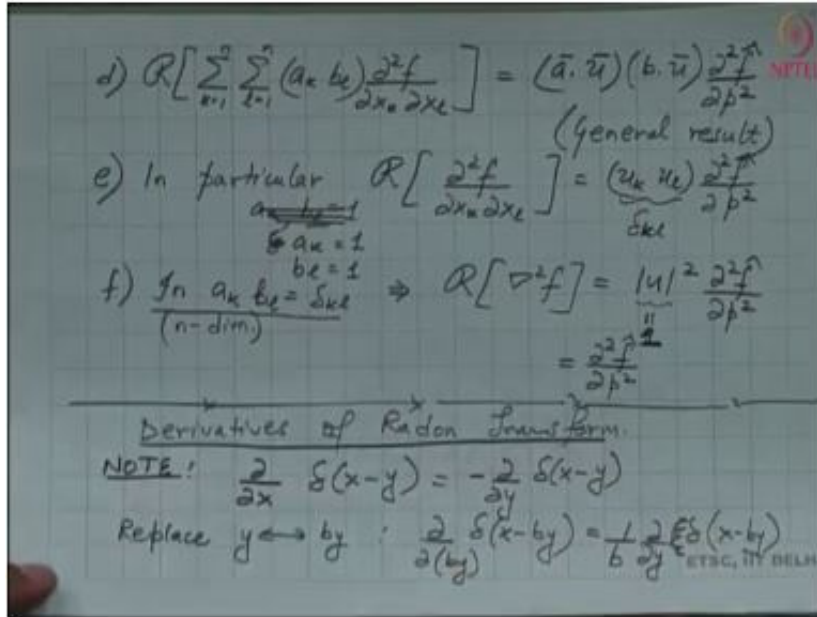 d) R[∑ₖ₌₁ⁿ ∑ₗ₌₁ⁿ (aₖ bₗ) ∂²f/∂xₖ∂xₗ] = (ā.ū)(b.ū) ∂²f̂/∂p²
NPTEL
(General result)
e) In particular R[∂²f/∂xₖ∂xₗ] = (uₖ uₗ) ∂²f̂/∂p²
δₖₗ
aₖ = 1
bₗ = 1
f) In aₖ bₗ = δₖₗ ⇒ R[∇²f] = |u|² ∂²f̂/∂p²
(n-dim.)
"
1
= ∂²f̂/∂p²
Derivatives of Radon Transform.
NOTE: ∂/∂x δ(x-y) = -∂/∂y δ(x-y)
Replace y ↔ by : ∂/∂(by) δ(x-by) = 1/b ∂/∂y δ(x-by)
ETSC, IIT DELH